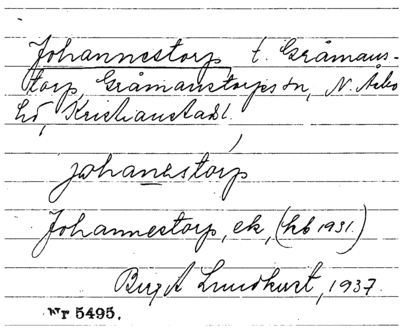 Johannestorp, t. Gråmans-
torp, Gråmanstorps sn, N. Åsbo
hd, Kristianstads l.
johanestórp
Johannestorp, ek, (hb 1931.)
Birgit Lundkvist, 1937.
Nr 5495.